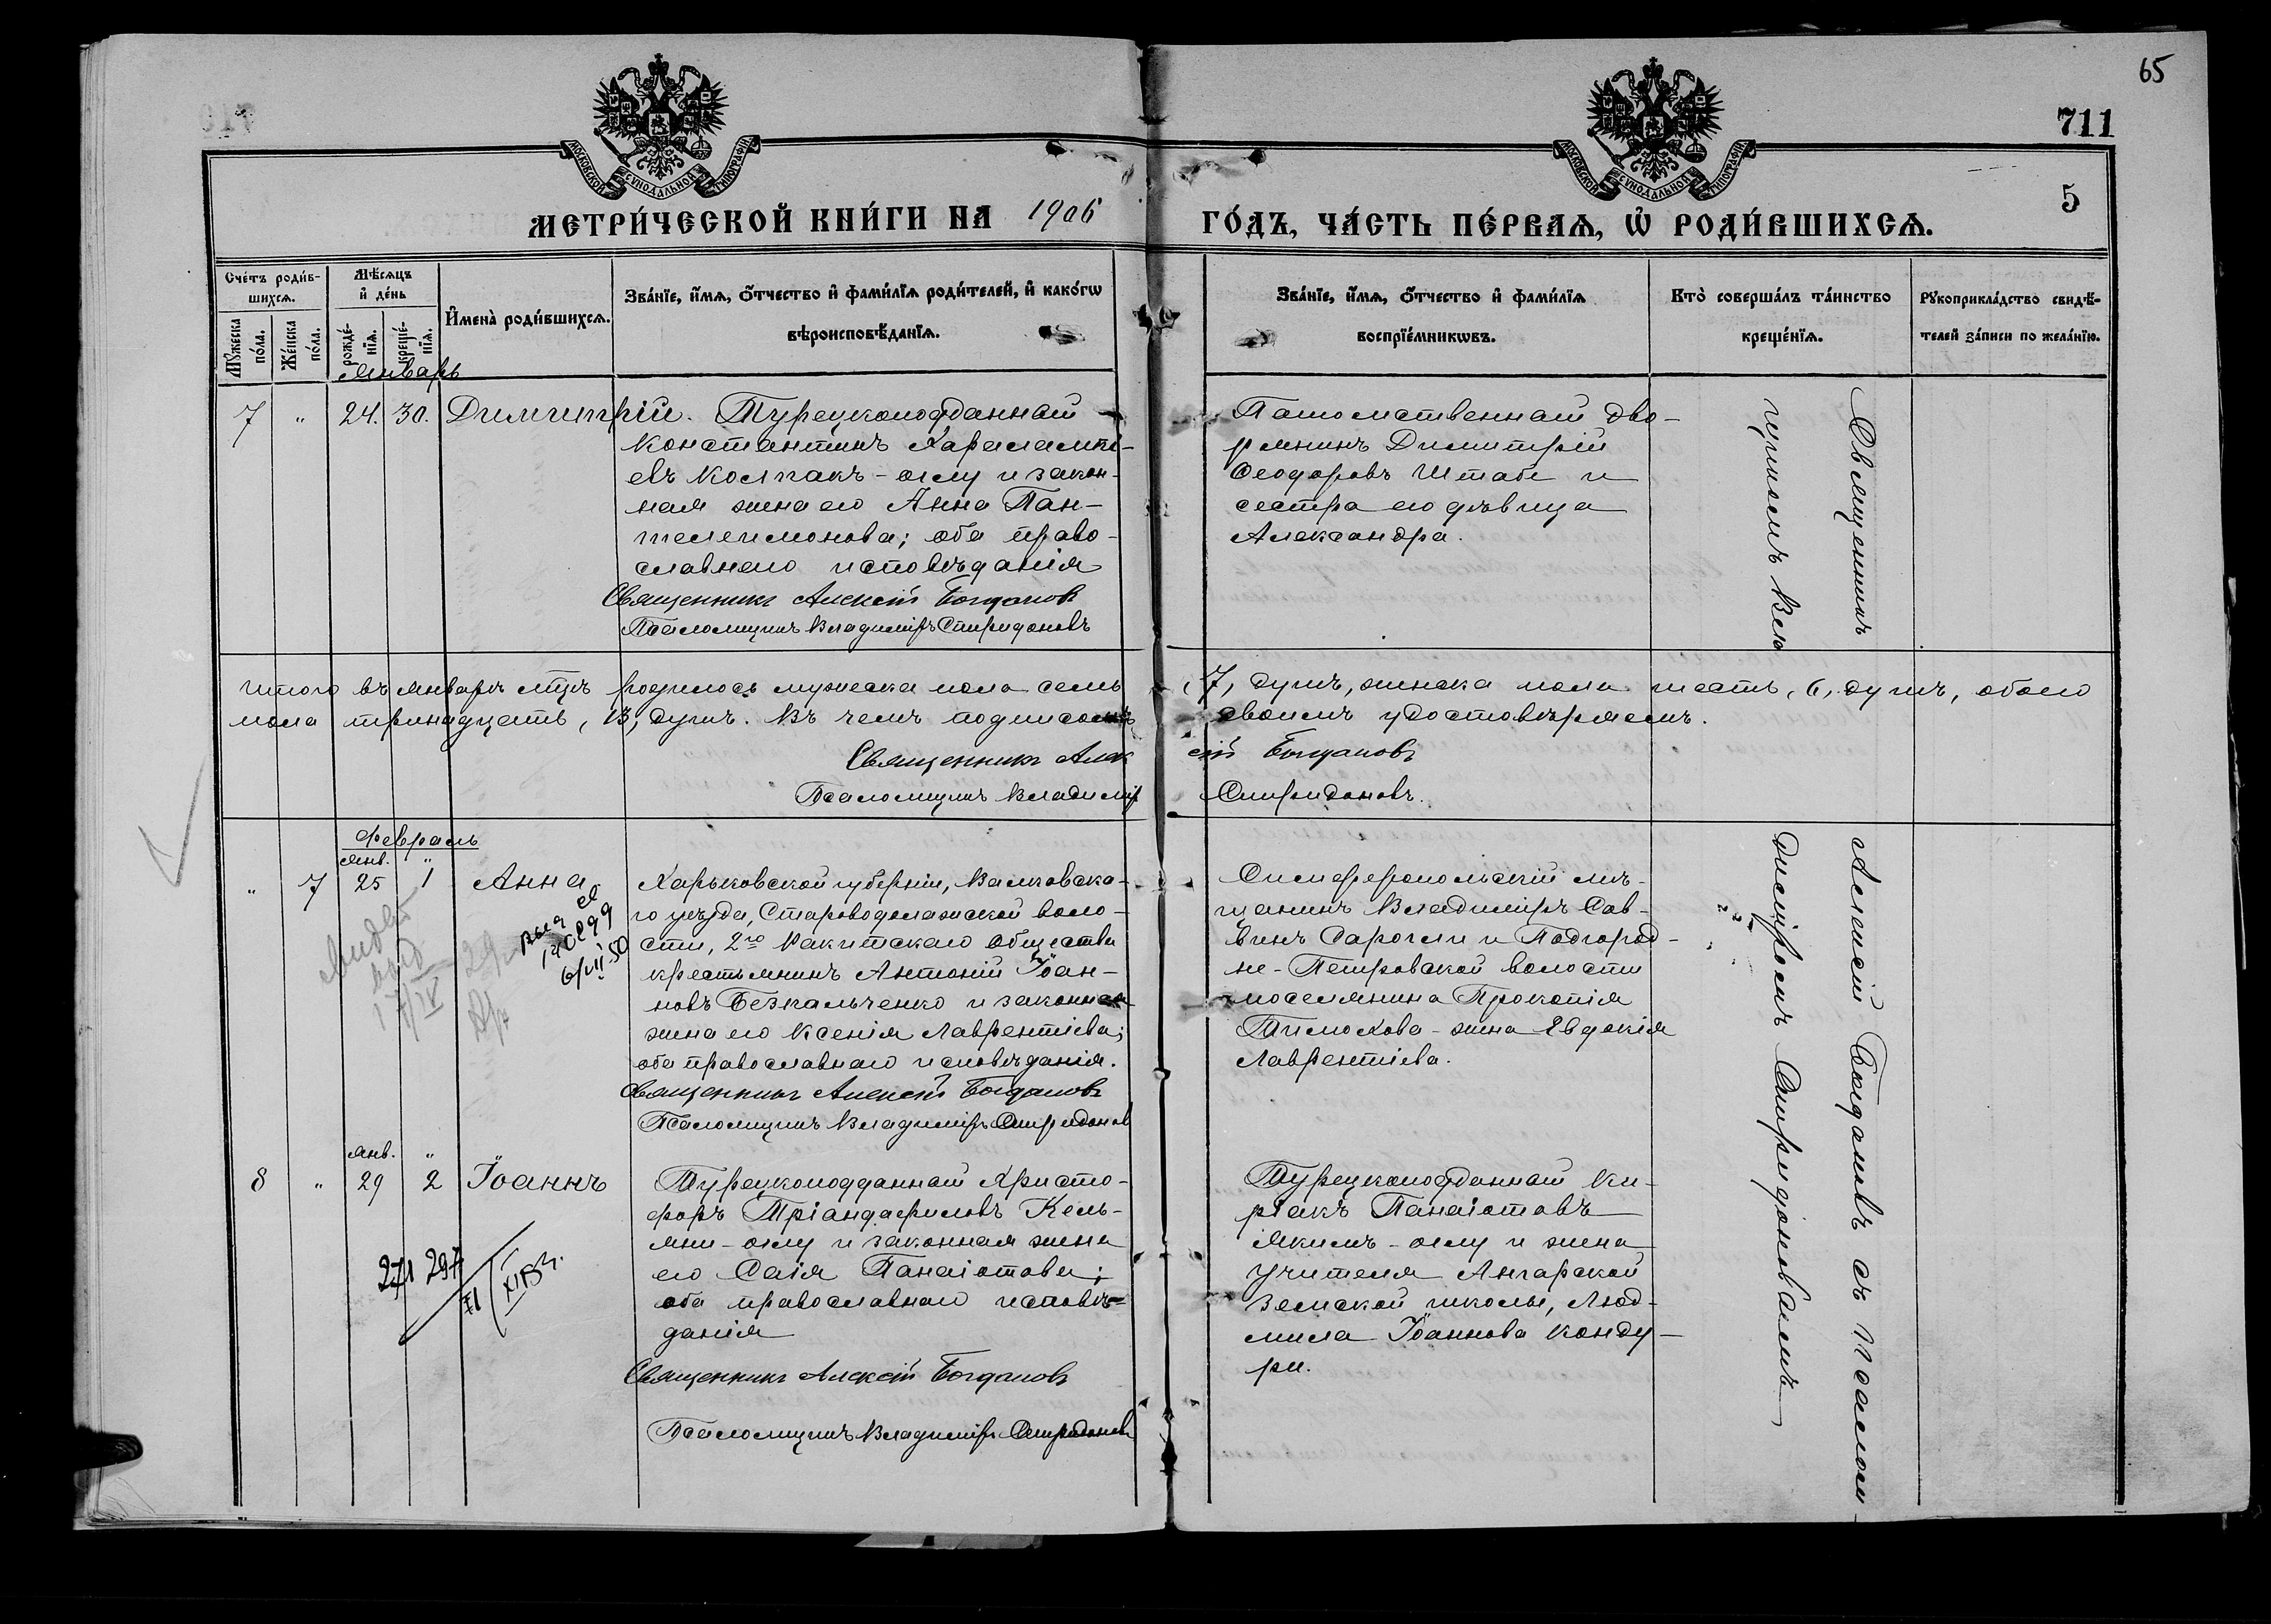 65
711
5
МОСКОВСКОЙ СѴНОДАЛЬНОЙ ТИПОГРАФІИ
МОСКОВСКОЙ СѴНОДАЛЬНОЙ ТИПОГРАФІИ
МЕТРИ́ЧЕСКОЙ КНИ́ГИ НА 1906 ГО́ДЪ, ЧА́СТЬ ПЕ́РВАѦ, Ѡ҆ РОДИ́ВШИХСѦ.
Сче́тъ роди́в-
шихсѧ.
Мꙋ́жеска
по́ла.
Же́нска
по́ла.
Мѣ́сѧцъ
и҆ де́нь
рожде́-
нїѧ.
креще́-
нїѧ.
И҆мена̀ роди́вшихсѧ.
Зва́нїе, и҆́мѧ, ѻ҆́тчество и҆ фами́лїѧ роди́телей, и҆ како́гѡ
вѣроисповѣ́данїѧ.
Зва́нїе, и҆́мѧ, ѻ҆́тчество и҆ фами́лїѧ
воспрїе́мникѡвъ.
Кто̀ соверша́лъ та́инство
креще́нїѧ.
Рꙋкоприкла́дство свидѣ́-
телей за́писи по жела́нїю.
Январь
7 " 24. 30. Димитрій.
Турецкоподданный
Константинъ Харалампі-
евъ Колпакъ-оглу и закон-
ная жена его Анна Пан-
телеимонова; оба право-
славнаго исповѣданія
Священникъ Алексій Богдановъ
Псаломщикъ Владиміръ Спиридоновъ
Потомственный дво-
рянинъ Димитрій
Ѳеодоровъ Штабе и
сестра его дѣвица
Александра.
Итого въ январѣ м-цѣ родилось мужеска пола семь, 7, душъ, женска пола шесть, 6, душъ, обоего
пола тринадцать, 13, душъ. Въ чемъ подписомъ своимъ удостовѣряемъ.
Священникъ Алексій Богдановъ
Псаломщикъ Владиміръ Спиридоновъ.
Февраль
Янв. "
" 7 25 1 Анна
140299
6/VII 50
Харьковской губерніи, Валковска-
го уѣзда, Староводолажской воло-
сти, 2го Ракитскаго общества
крестьянинъ Антоній Іоан-
новъ Безкальченко и законная
жена его Ксенія Лаврентіева;
оба православнаго исповѣданія.
Священникъ Алексій Богдановъ
Псаломщикъ Владиміръ Спиридоновъ
Симферопольскій мѣ-
щанинъ Владиміръ Сав-
винъ Сарогли и Подгород-
не-Петровской волости
поселянина Прокопія
Тимохова жена Евдокія
Лаврентіева.
Янв. "
8 " 29 2 Іоаннъ
Турецкоподданный Христо-
форъ Тріандафиловъ Кель-
яни-оглу и законная жена
его Саія Панаіотова;
оба православнаго исповѣ-
данія
Священникъ Алексій Богдановъ
Псаломщикъ Владиміръ Спиридоновъ
Турецкоподданный Ки-
ріакъ Панаіотовъ
Якимъ-оглу и жена
учителя Ангарской
земской школы, Люд-
мила Іоаннова Конду-
ри.
Священникъ
Алексій Богдановъ съ псалом-
щикомъ Вла-
диміромъ Спиридоновымъ